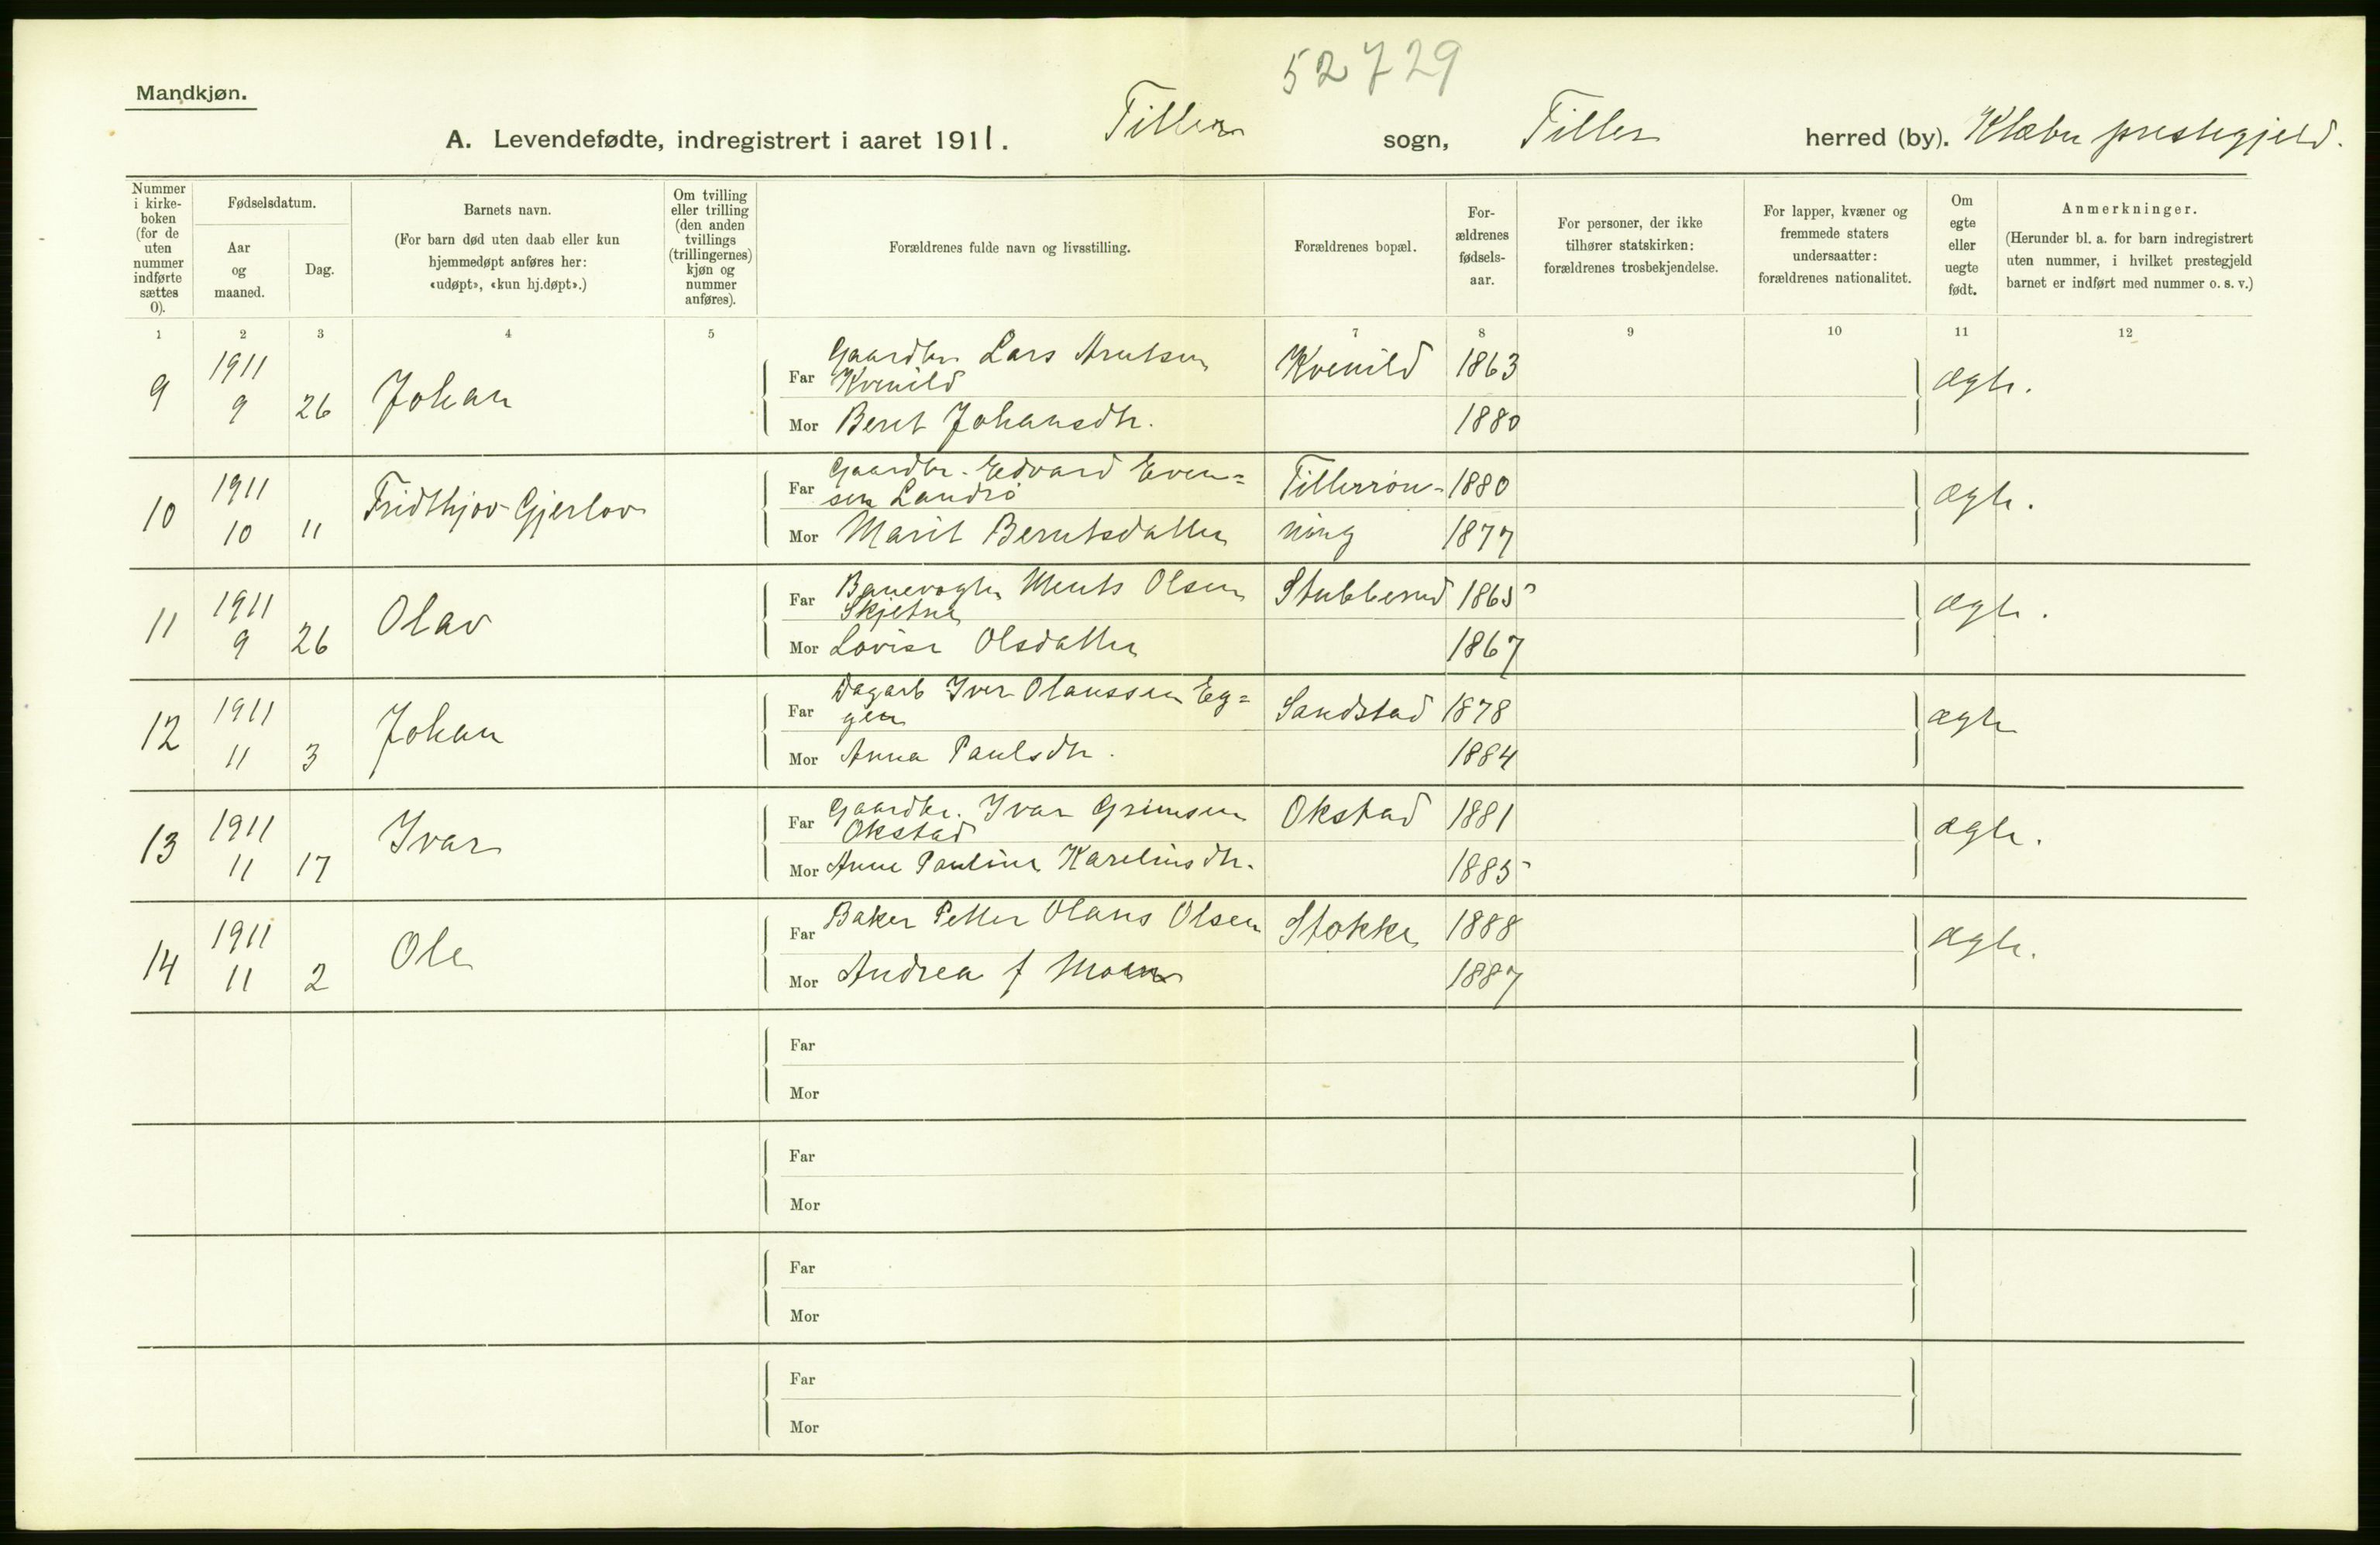 52729
Mandkjøn.
A. Levendefødte, indregistrert i aaret 1911. Tiller sogn, Tiller herred (by). Klæbu prestegjeld.
Nummer i kirkeboken (for de uten nummer indførte sættes 0).
Fødselsdatum.
Aar og maaned.
Dag.
Barnets navn.
(For barn død uten daab eller kun hjemmedøpt anføres her: «udøpt», «kun hj.døpt».)
Om tvilling eller trilling (den anden tvillings (trillingernes) kjøn og nummer anføres).
Forældrenes fulde navn og livsstilling.
Forældrenes bopæl.
Forældrenes fødselsaar.
For personer, der ikke tilhører statskirken: forældrenes trosbekjendelse.
For lapper, kvæner og fremmede staters undersaatter: forældrenes nationalitet.
Om egte eller uegte født.
Anmerkninger.
(Herunder bl. a. for barn indregistrert uten nummer, i hvilket prestegjeld barnet er indført med nummer o. s. v.)
1 2 3 4 5 7 8 9 10 11 12
9 1911 9 26 Johan
Far Gaardbr. Lars Arntsen Kvenild Kvenild 1863 ægte.
Mor Beret Johansdtr. 1880
10 1911 10 11 Fridthjov Gjerlov
Far Gaardbr. Edvard Even=
sen Landrö Tillerrön- 1880 ægte.
Mor Marit Berntsdatter ning 1877
11 1911 9 26 Olav
Far Banevogter Ments Olsen
Skjetne Stubberud 1865 ægte.
Mor Lovise Olsdatter 1867
12 1911 11 3 Johan
Far Dagarb Iver Olaussen Eg=
gen Sandstad 1878 ægte
Mor Anna Paulsdtr. 1884
13 1911 11 17 Ivar
Far Gaardbr. Ivar Grimsen
Okstad Okstad 1881 ægte.
Mor Anne Pauline Kareliusdtr. 1885
14 1911 11 2 Ole
Far Baker Petter Olaus Olsen Stokke 1888 ægte.
Mor Andrea f Moen 1887
Far
Mor
Far
Mor
Far
Mor
Far
Mor